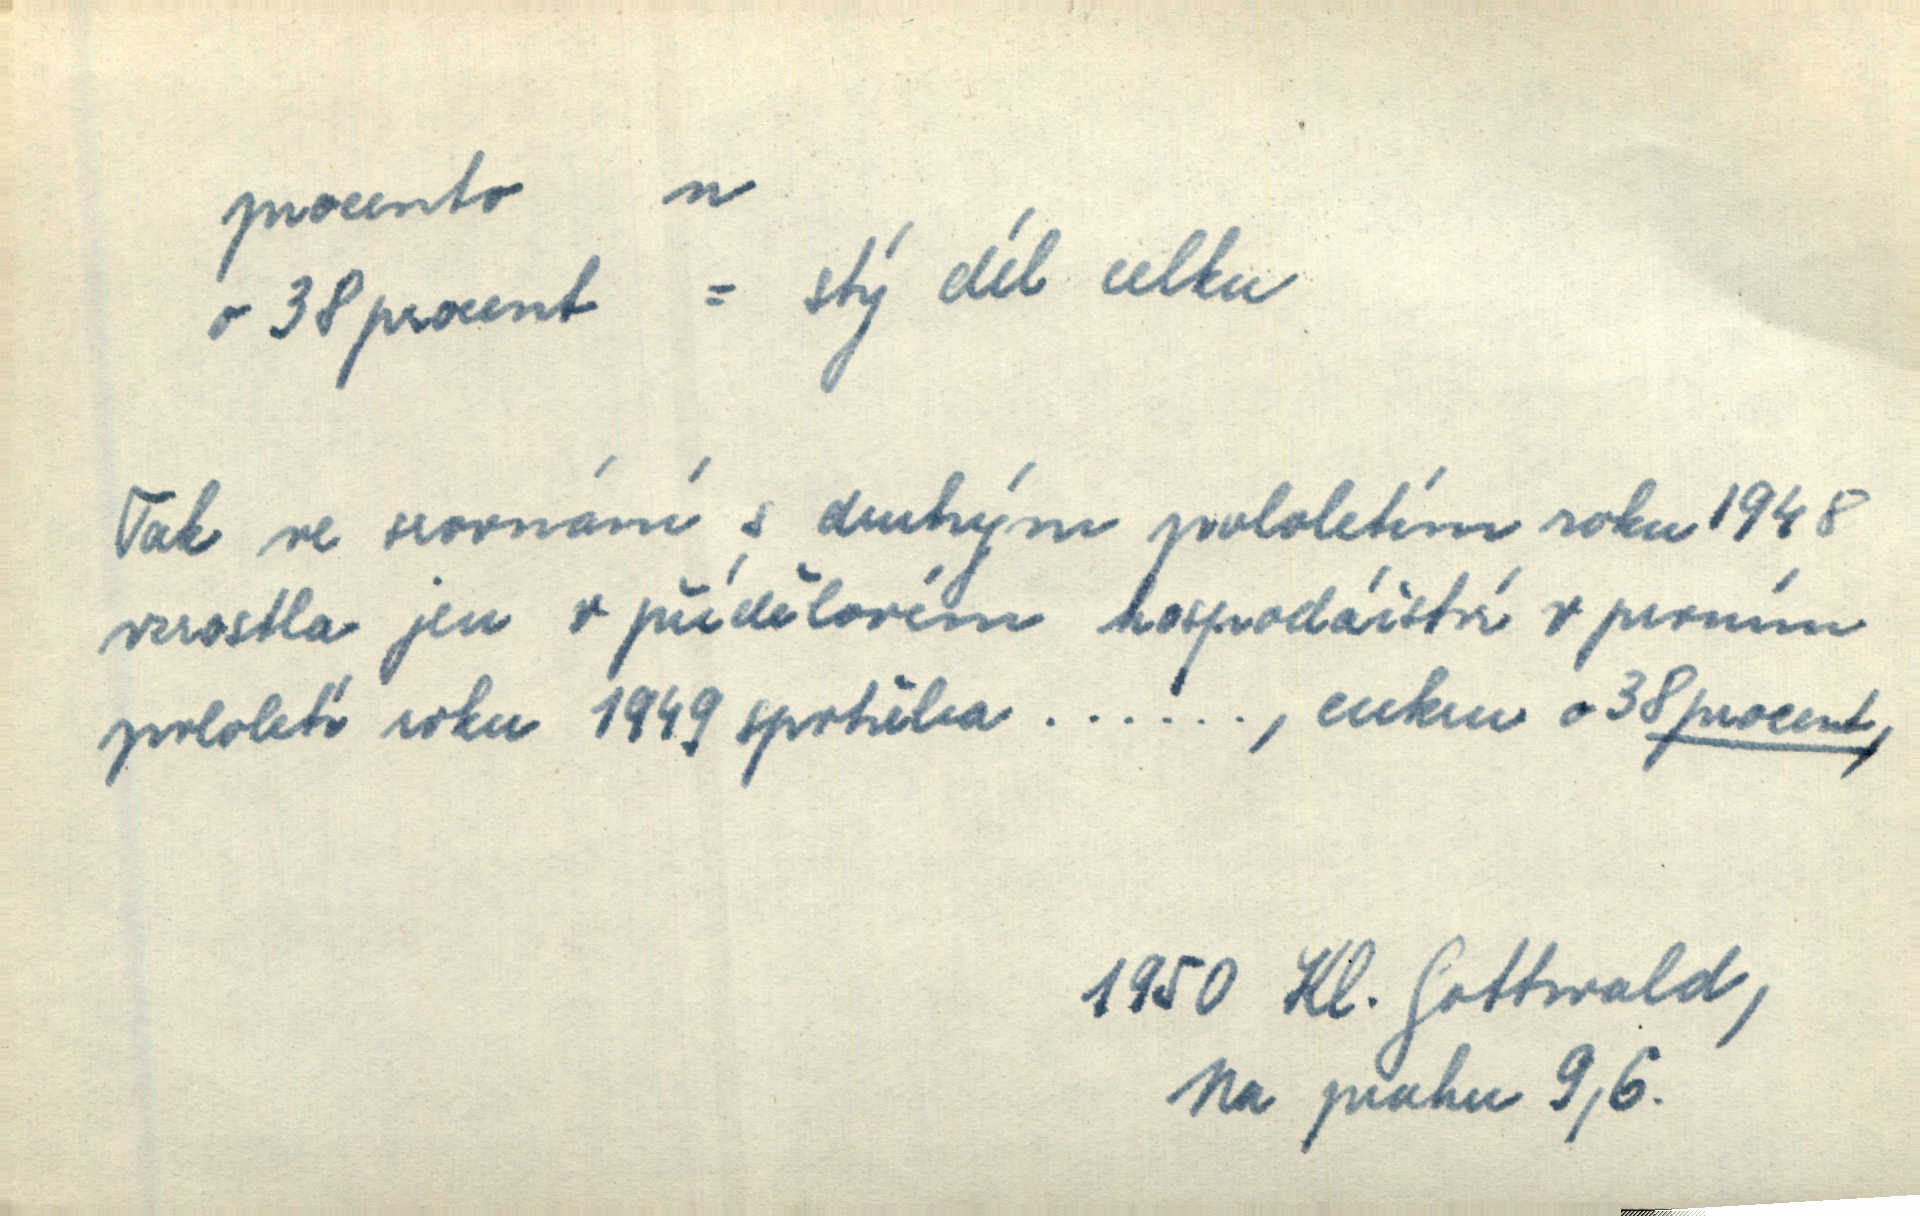 procento n
o 38 procent = stý díl celku
Tak ve srovnání s druhým pololetím roku 1948
vzrostla jen v přídělovém hospodářství v prvním
pololetí roku 1949 spotřeba . . . . . . ., cukru o 38 procent,
1950 Kl. Gottwald,
Na prahu 9,6.